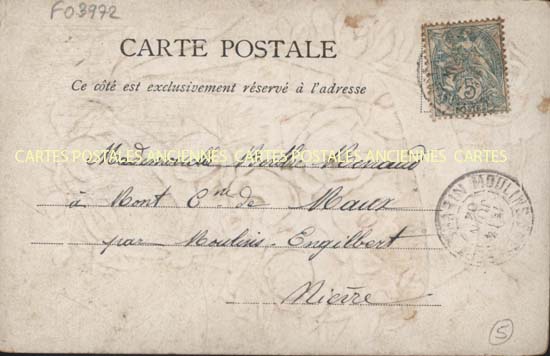 FO3972
CARTE POSTALE
Ce côté est exclusivement réservé à l'adresse
5
CARTES POSTALES ANCIENNES CARTES POSTALES ANCIENNES CARTES
Mademoiselle Berthe Renaud
à Mont Cne de Maux
par Moulins-Engilbert
Nièvre
MOULINS
5